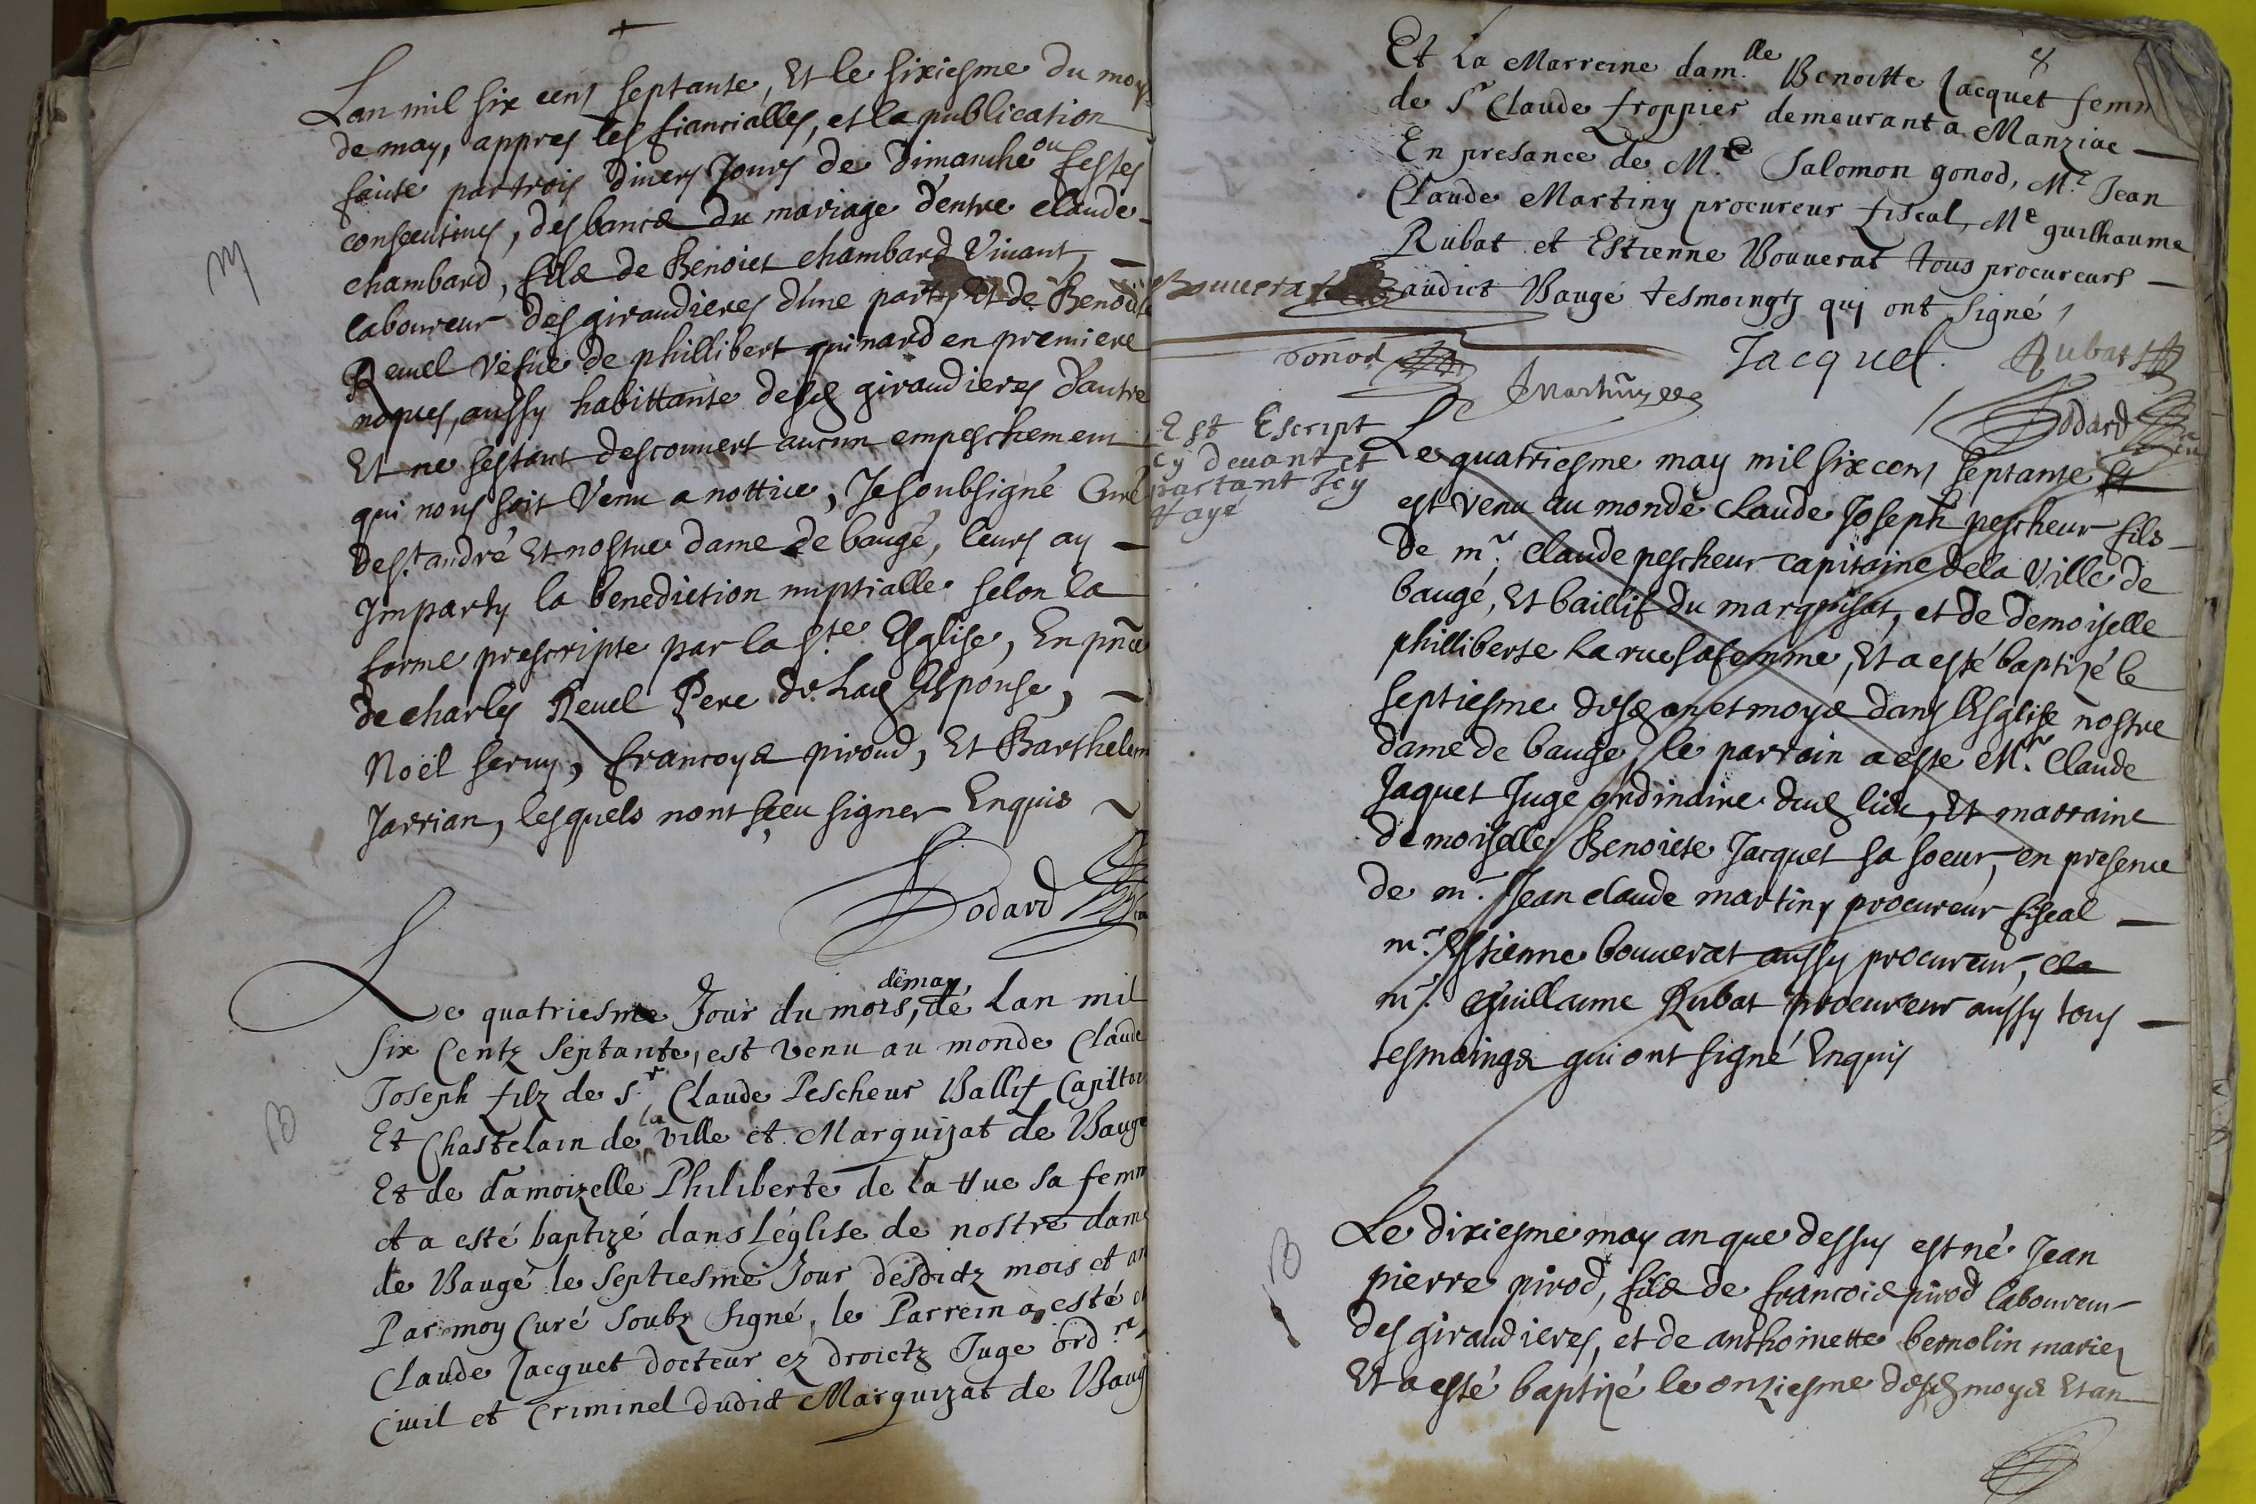 Lan mil six cens septante, Et le sixiesme du moys
de may, appres les fiancialles, et la publication
faite par trois divers Jours de dimanche ou festes
consecutives, des bancs du mariage d'entre claude
M
chambard, fils de Benoict chambard Vivant,
laboureur des giraudieres d'une part, Et de Benoiste
Revel vefue de phillibert guinard en premiere
nopces, aussy habittante desd giraudieres d'autre
Et ne sestant descouvert aucun empeschement
qui nous soit Venu a nottice, Je soubsigné Curé
de st andré Et nostre dame de baugé, leurs ay
Imparty la benediction nuptialle selon la
forme prescripte par la ste Esglise, En pnce
de charles Revel Pere de lad Esponse,
Noël seruy, francoys piroud, Et Barthelem
Jarrian, lesquels nont sçeu signer Enquis
Dodard
Le quatriesme Jour du mois, de may de Lan mil
six Centz Septante, est venu au monde Claude
Joseph filz de Sr Claude Pescheur Ballif Capitai
B
Et Chastelain de la ville et Marquizat de Baugé
Et de damoizelle Philiberte de la rue sa femm
et a esté baptizé dans l'église de nostre dame
de Baugé le Septiesme Jour desdictz mois et an
Par moy Curé soubz signé, le Parrein a esté
Claude Jacquet docteur ez droictz Juge ord.re
Civil et Criminel dudit Marquizat de Baugé
8
Et La Marreine dam.lle Benoitte Jacquet femm
de Sr Claude froppier demeurant a Manziac
En presance de M.e Salomon gonod, M.e Jean
Claude Martiny procureur fiscal, Me guilhaume
Rubat et Estienne Bouverat tous procureurs
audict Baugé tesmoingtz quj ont signé
Bouverat
Gonod
Martiny
Jacquet
Rubat
Dodard
Est Escript
cy devant et
partant Icy
raye
Le quatriesme may mil six cens septante
est Venu au monde Claude Joseph pescheur fils
de mr. claude pescheur capitaine de la Ville de
baugé, Et baillif du marquisat, et de demoiselle
philliberte La rue sa femme, Et a esté baptizé le
septiesme desd an et moys dans l'Esglise nostre
dame de baugé, le parrain a esté Mr. Claude
Jaquet Juge ordinaire dud lieu, Et marraine
demoiselle Benoiste Jacquet sa soeur, en presence
de mr. Jean claude martiny procureur fiscal
mr. Estienne bouverat aussy procureur,
mr. Guillaume Rubat procureur aussy tous
tesmoings qui ont signé Enquis
B
Le dixiesme may an que dessus est né Jean
pierre pirod, fils de francois pirod laboureur
des giraudieres, et de anthoinette bernolin mariez
Et a esté baptizé le onziesme desd moys et an